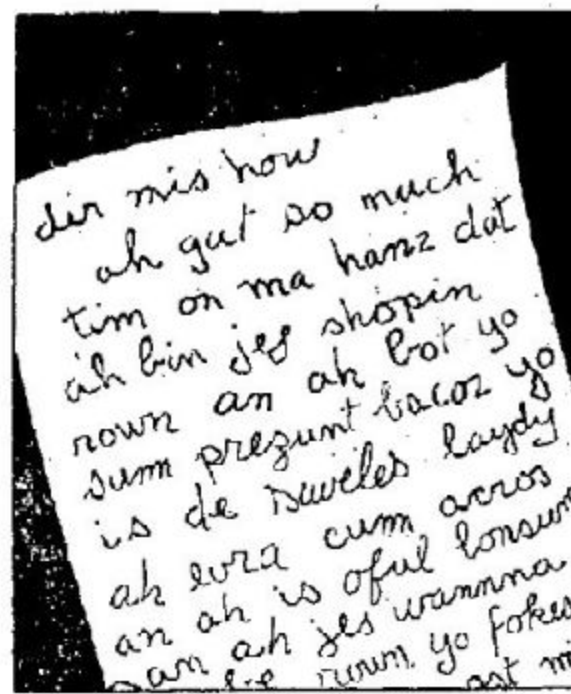 dir mis how
ah gut so much
tim on ma hanz dat
ah bin jes shopin
rown an ah bot yo
sum prezunt bacoz yo
is de sweles laydy
ah evra cum acros
an ah is oful lonsum
an ah jes wannna
be rown yo fokes
ast mi